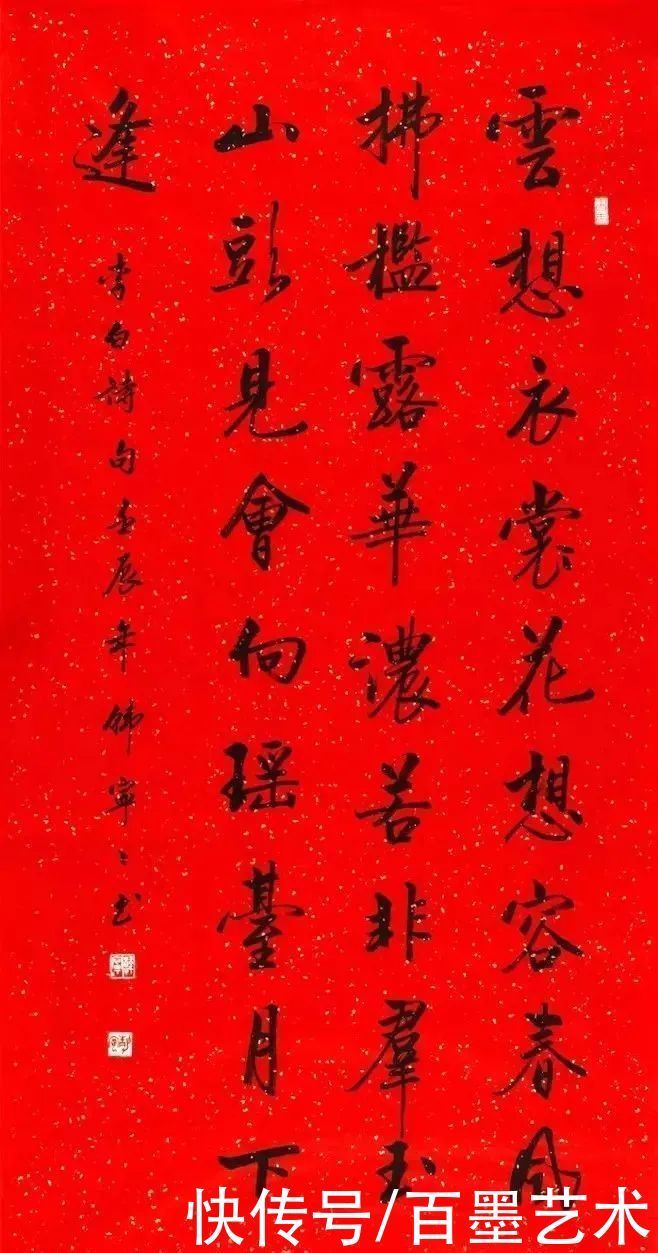 雲想衣裳花想容春風
拂檻露華濃若非羣玉
山頭見會向瑤臺月下
逢
李白詩句壬辰年韩寧〻书
快传号/百墨艺术